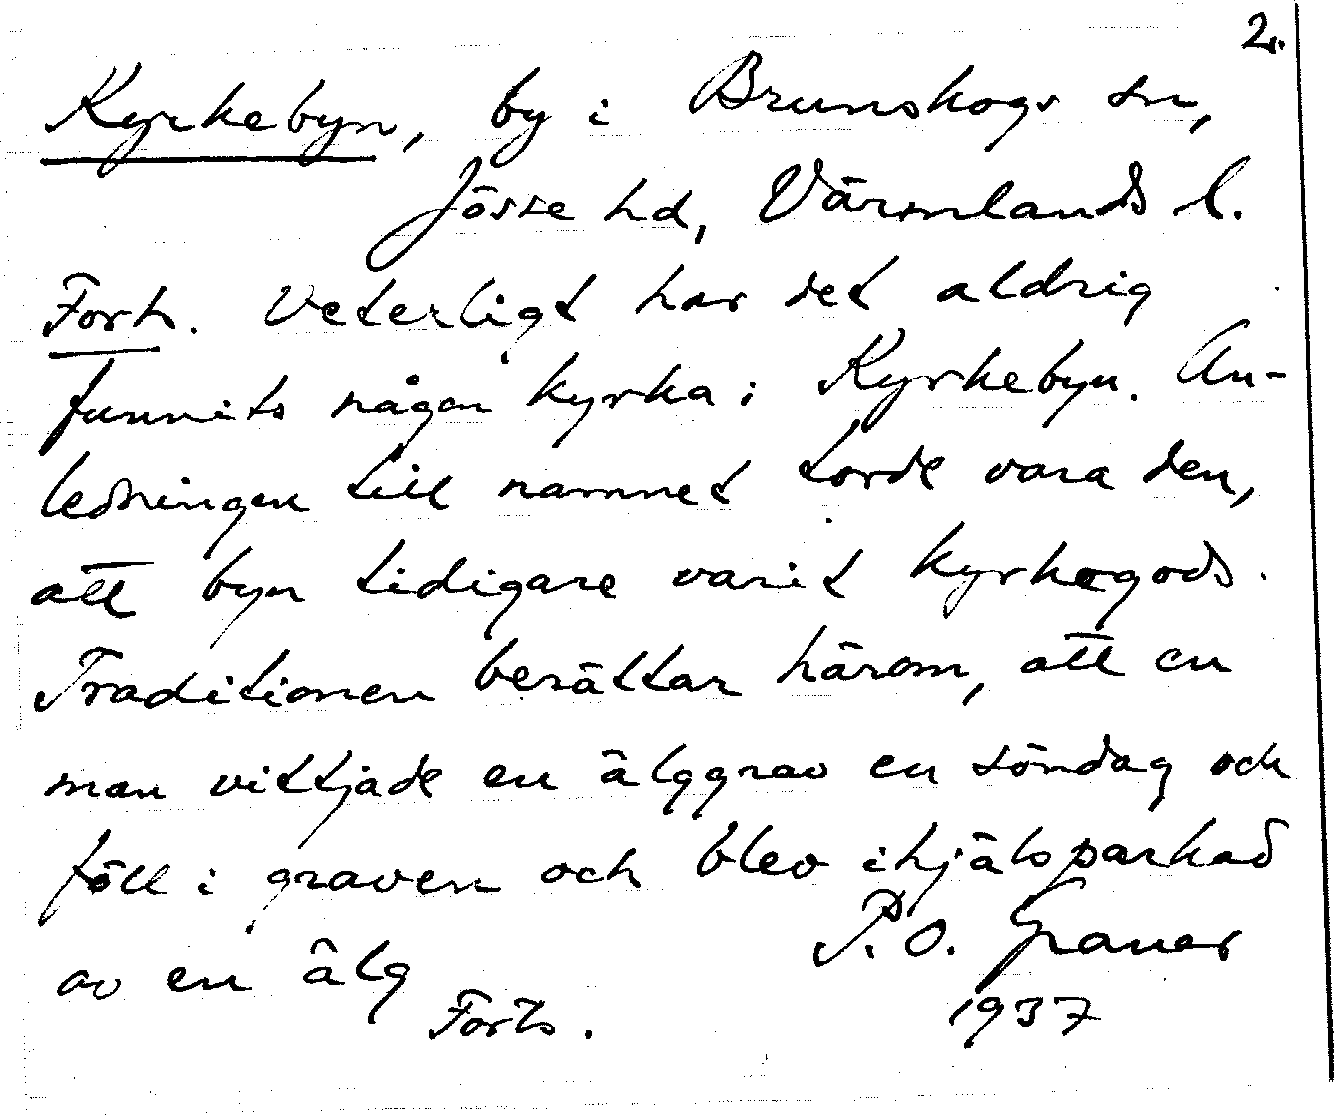 2.
Kyrkebyn, by i Brunskogs sn,
Jösse hd, Värmlands l.
Forts. Veterligt har det aldrig
funnits någon kyrka i Kyrkebyn. An-
ledningen till namnet torde vara den,
att byn tidigare varit kyrkogods.
Traditionen berättar härom, att en
man vittjade en älggrav en söndag och
föll i graven och blev ihjälsparkad
av en älg
P. O. Graner
Forts.
1937